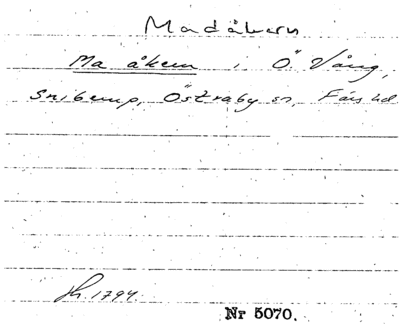 Madåkern
Ma åkern i Ö Vång,
Sniberup, Östraby sn, Färs hd
Sk. 1794.
Nr 5070.